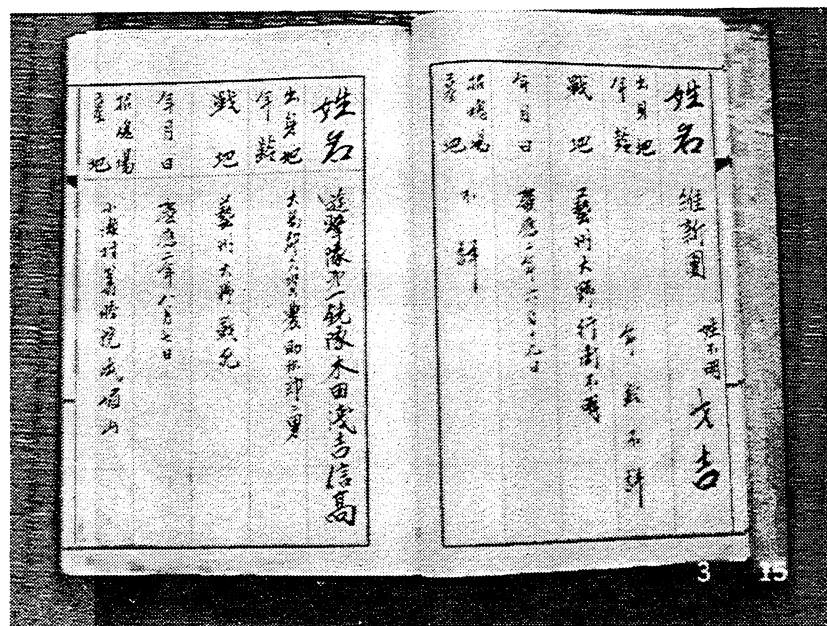 姓名 維新團 姓不明 文吉
出身地
年齡 年齡不詳
戦地 藝州大野行衛不明
年月日 慶應二年六月十九日
招魂場 不詳
産地
姓名 遊撃隊第一銃隊木田浅吉信高
出身地
年齡 農 二男
戦地 藝州大野戦死
年月日 慶應二年八月七日
招魂場
産地
3 15